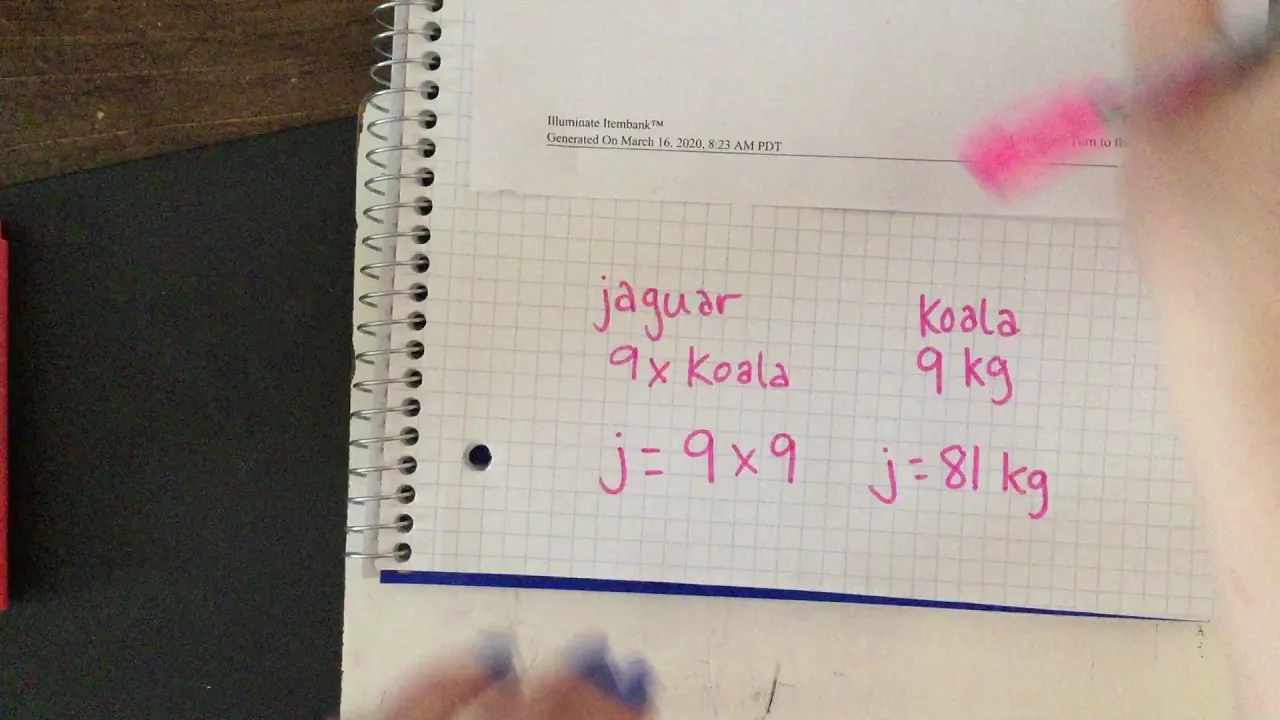 Illuminate Itembank™
Generated On March 16, 2020, 8:23 AM PDT
jaguar
Koala
9 x Koala
9 kg
j = 9 x 9
j = 81 kg